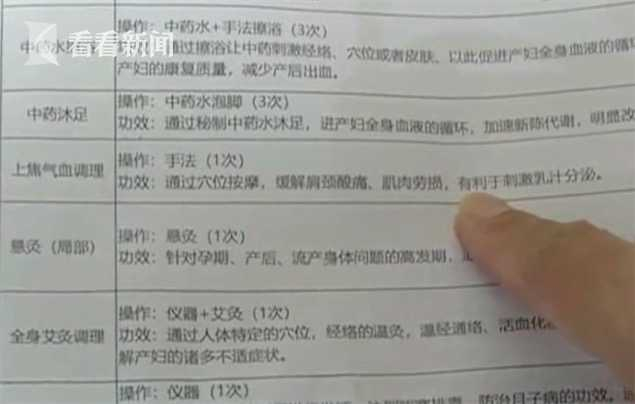 看看新闻
操作：中药水+手法擦浴（3次）
中药水擦浴
通过擦浴让中药刺激经络、穴位或者皮肤、以此促进产妇全身血液的循
产妇的康复质量，减少产后出血。
操作：中药水泡脚（3次）
中药沐足
功效：通过秘制中药水沐足，进产妇全身血液的循环，加速新陈代谢，明显改
操作：手法（1次）
上焦气血调理
功效：通过穴位按摩，缓解肩颈酸痛、肌肉劳损，有利于刺激乳汁分泌。
操作：悬灸（1次）
悬灸（局部）
功效：针对孕期、产后、流产身体问题的高发期，
操作：仪器+艾灸（1次）
全身艾灸调理
功效：通过人体特定的穴位，经络的温灸，温经通络、活血化
解产妇的诸多不适症状。
操作：仪器（1次）
防治月子病的功效。